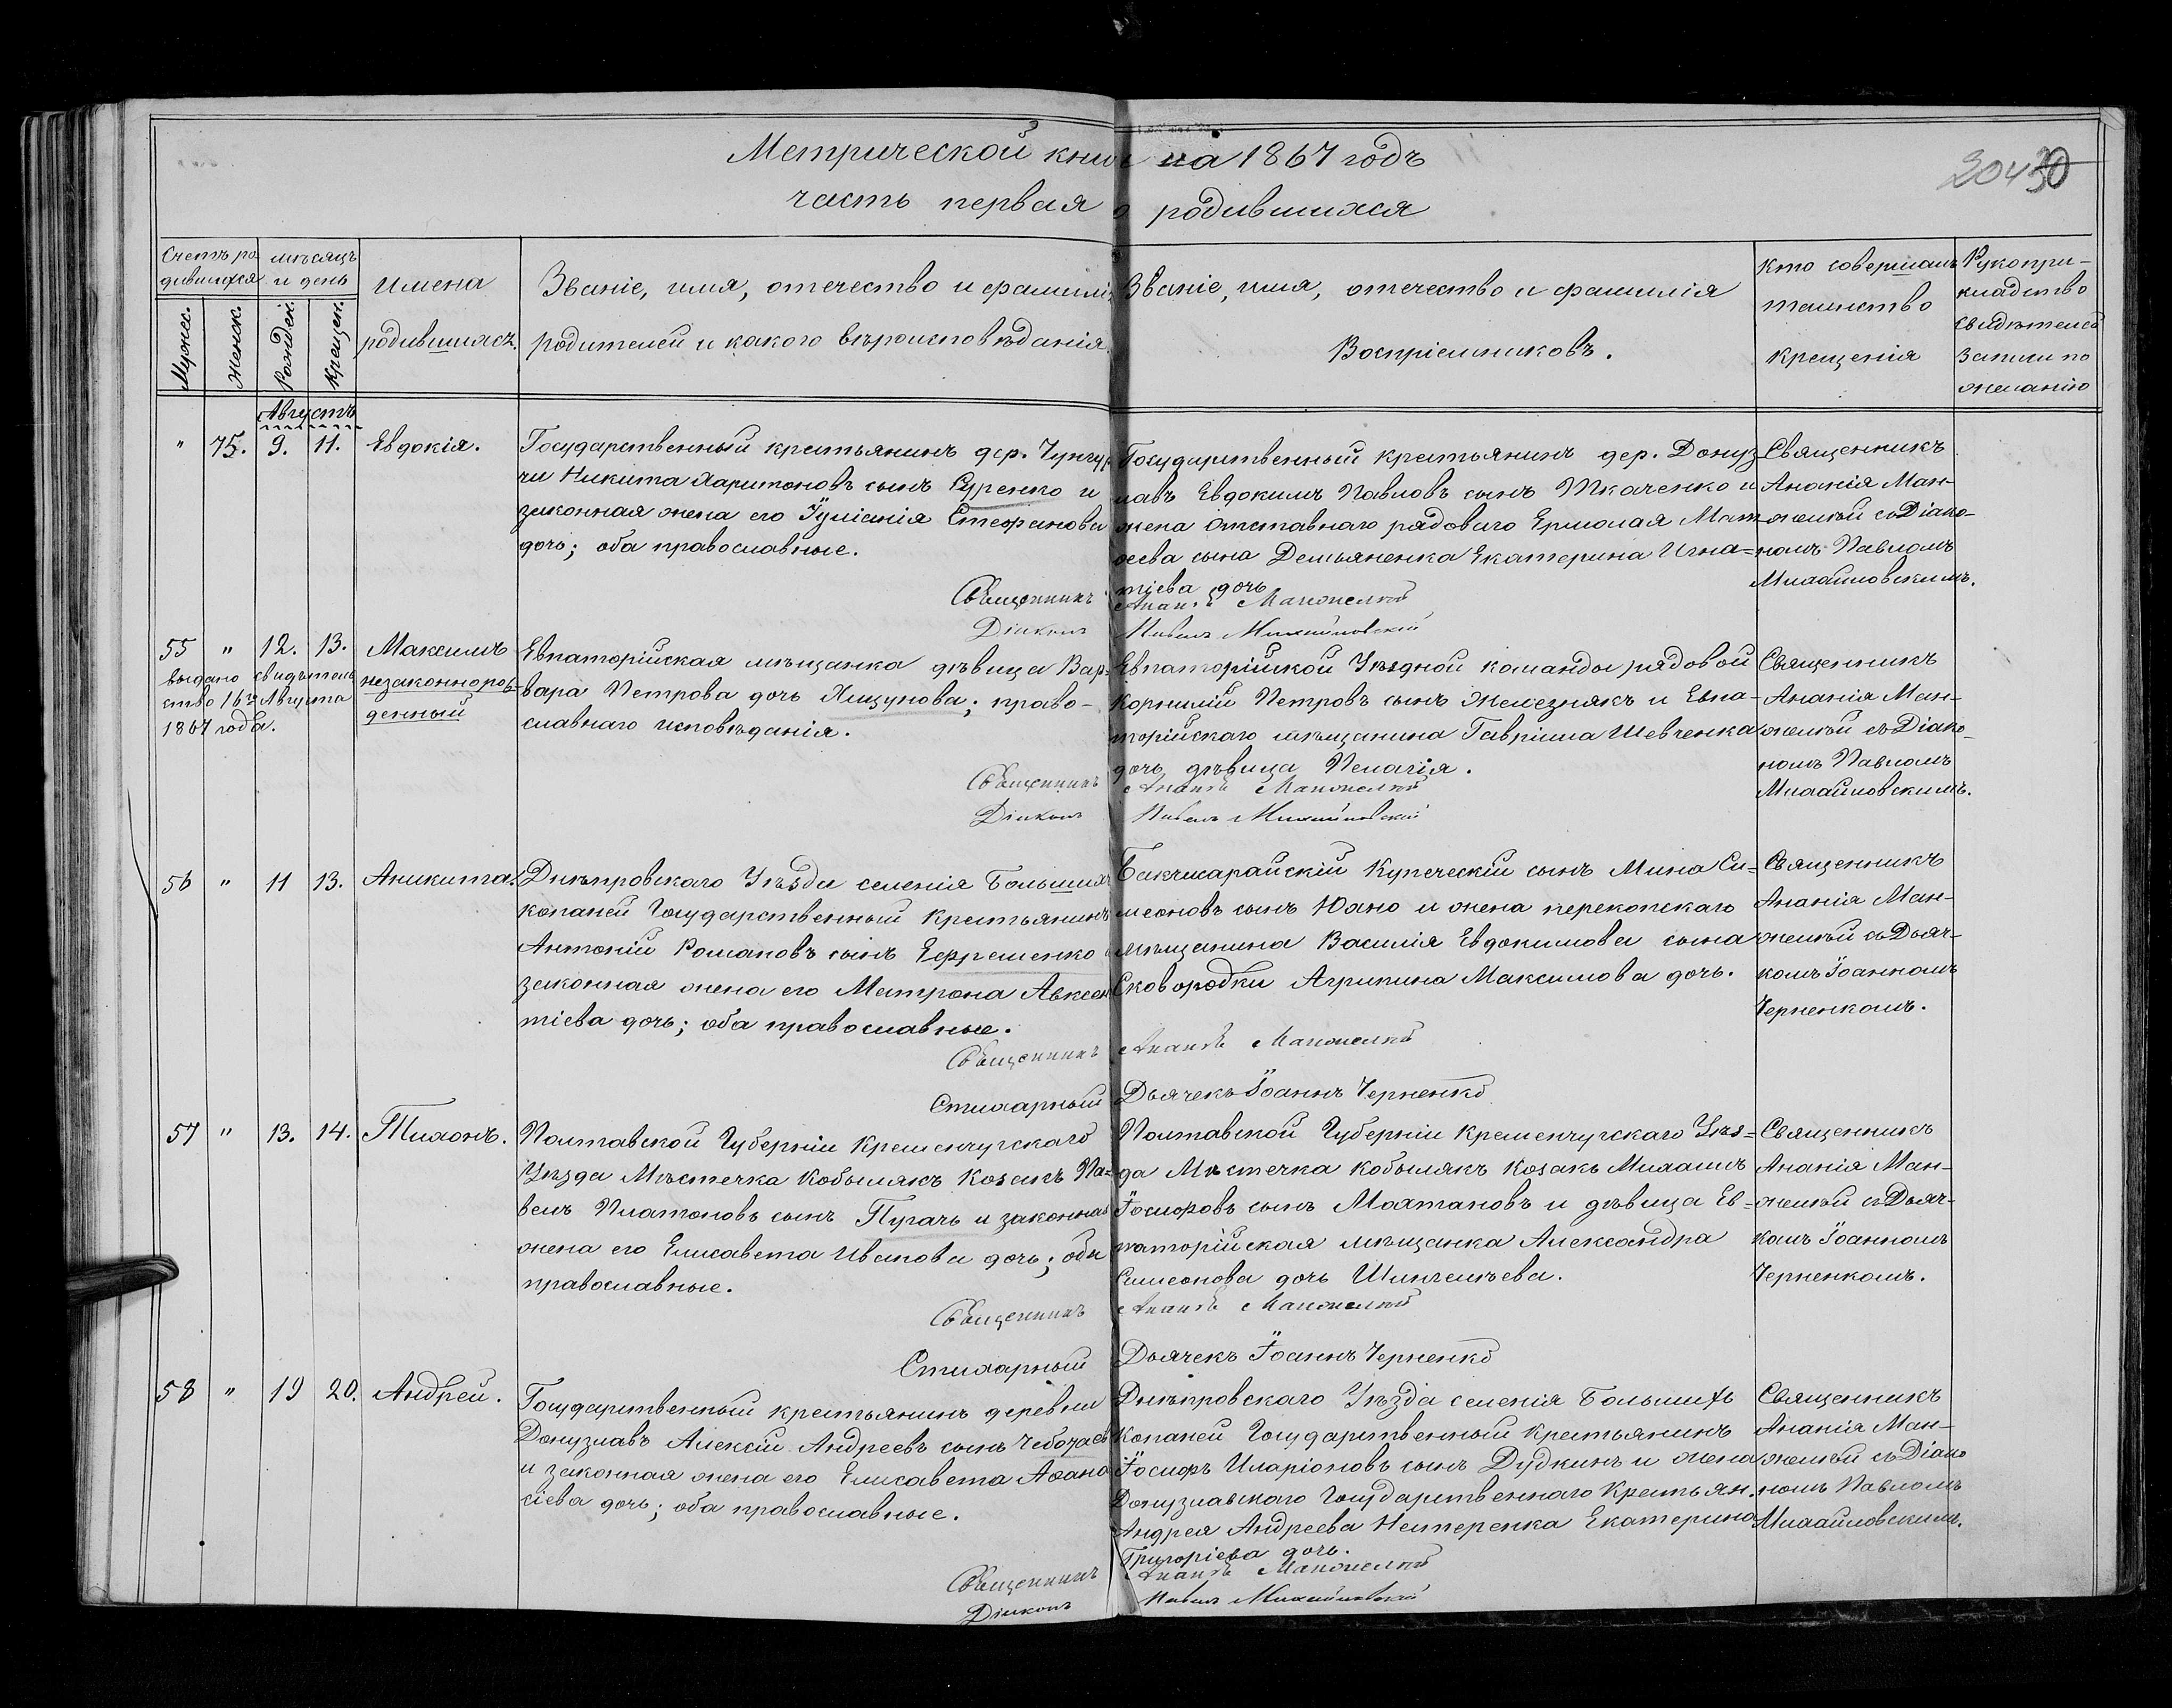 Метрической книги на 1867 годъ
часть первая о родившихся
30
Счетъ ро-
дившихся
мѣсяцъ
и день
Имена
родившихся.
Званіе, имя, отечество и фамилія
родителей и какого вѣроисповѣданія.
Званіе, имя, отечество и фамилія
Воспріемниковъ.
Кто совершалъ
таинство
крещенія
Рукопри-
кладство
свидѣтелей
записи по
желанію
Мужес.
Женск.
Рожден.
Крещен.
Августъ
" 75. 9. 11. Евдокія.
Государственный крестьянинъ дер. Чунгур
чи Никита Харитоновъ сынъ Суренко и
законная жена его Іуліанія Стефанова
дочь; оба православные.
Государственный крестьянинъ дер. Донуз-
лавъ Евдокимъ Павловъ сынъ Ткаченко и
жена отставнаго рядоваго Ермолая Мат-
ѳеева сына Демьяненка Екатерина Игна=
тіева дочь
Священникъ
Ананія Ман-
желѣй съ Діако-
номъ Павломъ
Михайловскимъ.
Священникъ Ананій Манжелей
Діаконъ Павелъ Михайловскій
55 " 12. 13. Максимъ
незаконнорож-
денный
выдано свидѣтель
ство 16го Августа
1867 года.
Евпаторійская мѣщанка дѣвица Вар-
вара Петрова дочь Ящунова; право-
славнаго исповѣданія.
Евпаторійской Уѣздной команды рядовой
Корнилій Петровъ сынъ Железнякъ и Евпа-
торійскаго мѣщанина Гавріила Шевченка
дочь дѣвица Пелагія.
Священникъ
Ананія Ман-
желѣй съ Діако-
номъ Павломъ
Михайловскимъ.
Священникъ Ананій Манжелей
Діаконъ Павелъ Михайловскій
56 " 11 13. Аникита.
Днѣпровскаго Уѣзда селенія Большихъ
копаней Государственный Крестьянинъ
Антоній Романовъ сынъ Ефременко и
законная жена его Матрона Авксен
тіева дочь; оба православные.
Бакчисарайскій Купеческій сынъ Мина Си-
меоновъ сынъ Юано и жена перекопскаго
мѣщанина Василія Евдокимова сына
Сковородки Агрипина Максимова дочь.
Священникъ
Ананія Ман-
желѣй съ Дьяч-
комъ Іоанномъ
Черненкомъ.
Священникъ Ананій Манжелей
Стихарный Дьячекъ Іоаннъ Черненко
57 " 13. 14. Тихонъ.
Полтавской Губерніи Кременчугскаго
Уѣзда Мѣстечка Кобылякъ Козакъ Па-
велъ Платоновъ сынъ Пугачь и законная
жена его Елисавета Иванова дочь; оба
православные.
Полтавской Губерніи Кременчугскаго Уѣз=
да Мѣстечка Кобылякъ Козакъ Михаилъ
Іосифовъ сынъ Махтановъ и дѣвица Ев-
паторійская мѣщанка Александра
Симеонова дочь Шингелѣева.
Священникъ
Ананія Ман-
желѣй съ Дьяч-
комъ Іоанномъ
Черненкомъ.
Священникъ Ананій Манжелей
Стихарный Дьячекъ Іоаннъ Черненко
58 " 19 20. Андрей.
Государственный крестьянинъ деревни
Донузлавъ Алексій Андреевъ сынъ Чеботаев
и законная жена его Елисавета Аѳана
сіева дочь; оба православные.
Днѣпровскаго Уѣзда селенія Большихъ
Копаней Государственный Крестьянинъ
Іосифъ Иларіоновъ сынъ Дудкинъ и жена
Донузлавскаго Государственнаго Крестьян.
Андрея Андреева Нестеренка Екатерина
Григоріева дочь.
Священникъ
Ананія Ман-
желѣй съ Діако
номъ Павломъ
Михайловскимъ.
Священникъ Ананій Манжелей
Діаконъ Павелъ Михайловскій